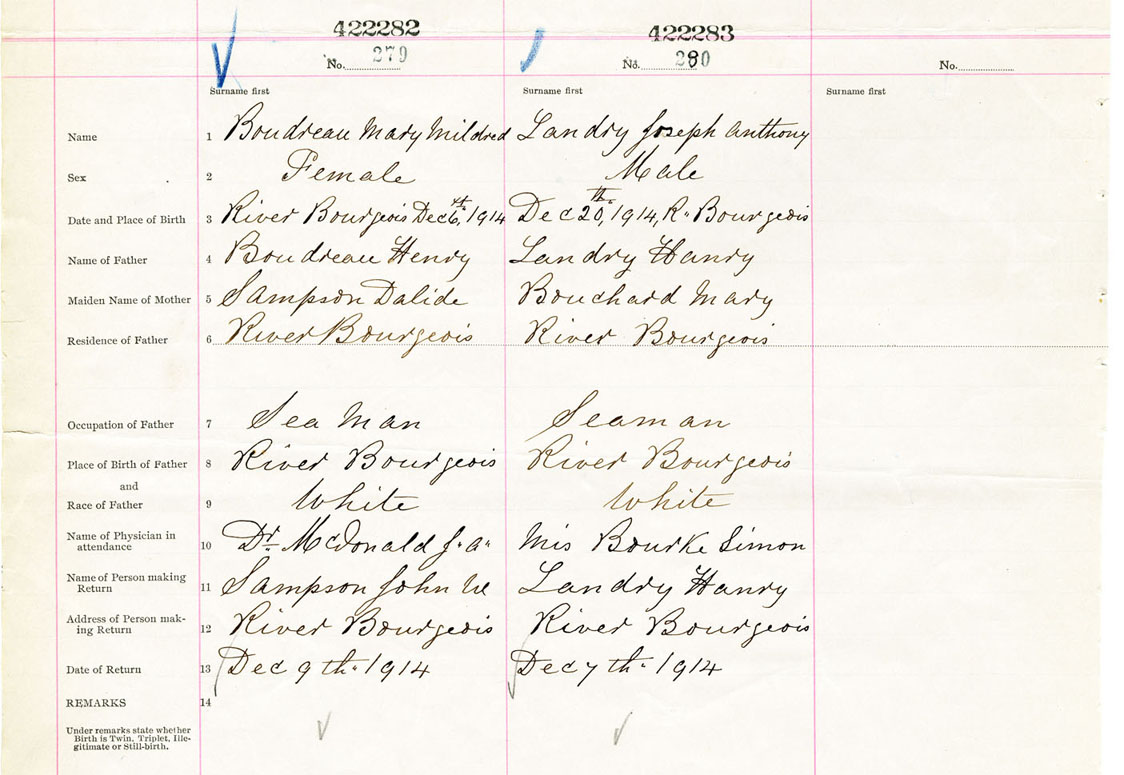 422282 422283
No. 279 No. 280 No.
Surname first Surname first Surname first
Name 1 Boudreau Mary Mildred Landry Joseph Anthony
Sex 2 Female Male
Date and Place of Birth 3 River Bourgeois Dec 6, 1914 Dec 20th, 1914, R. Bourgeois
Name of Father 4 Boudreau Henry Landry Hanry
Maiden Name of Mother 5 Sampson Dalide Bouchard Mary
Residence of Father 6 River Bourgeois River Bourgeois
Occupation of Father 7 Sea Man Seaman
Place of Birth of Father 8 River Bourgeois River Bourgeois
and
Race of Father 9 White White
Name of Physician in
attendance 10 Dr. McDonald J. a. Mis Bourke Simon
Name of Person making
Return 11 Sampson John Landry Hanry
Address of Person mak-
ing Return 12 River Bourgeois River Bourgeois
Date of Return 13 Dec 9 th. 1914 Dec 7 th. 1914
REMARKS 14
Under remarks state whether
Birth is Twin, Triplet, Ille-
gitimate or Still-birth.